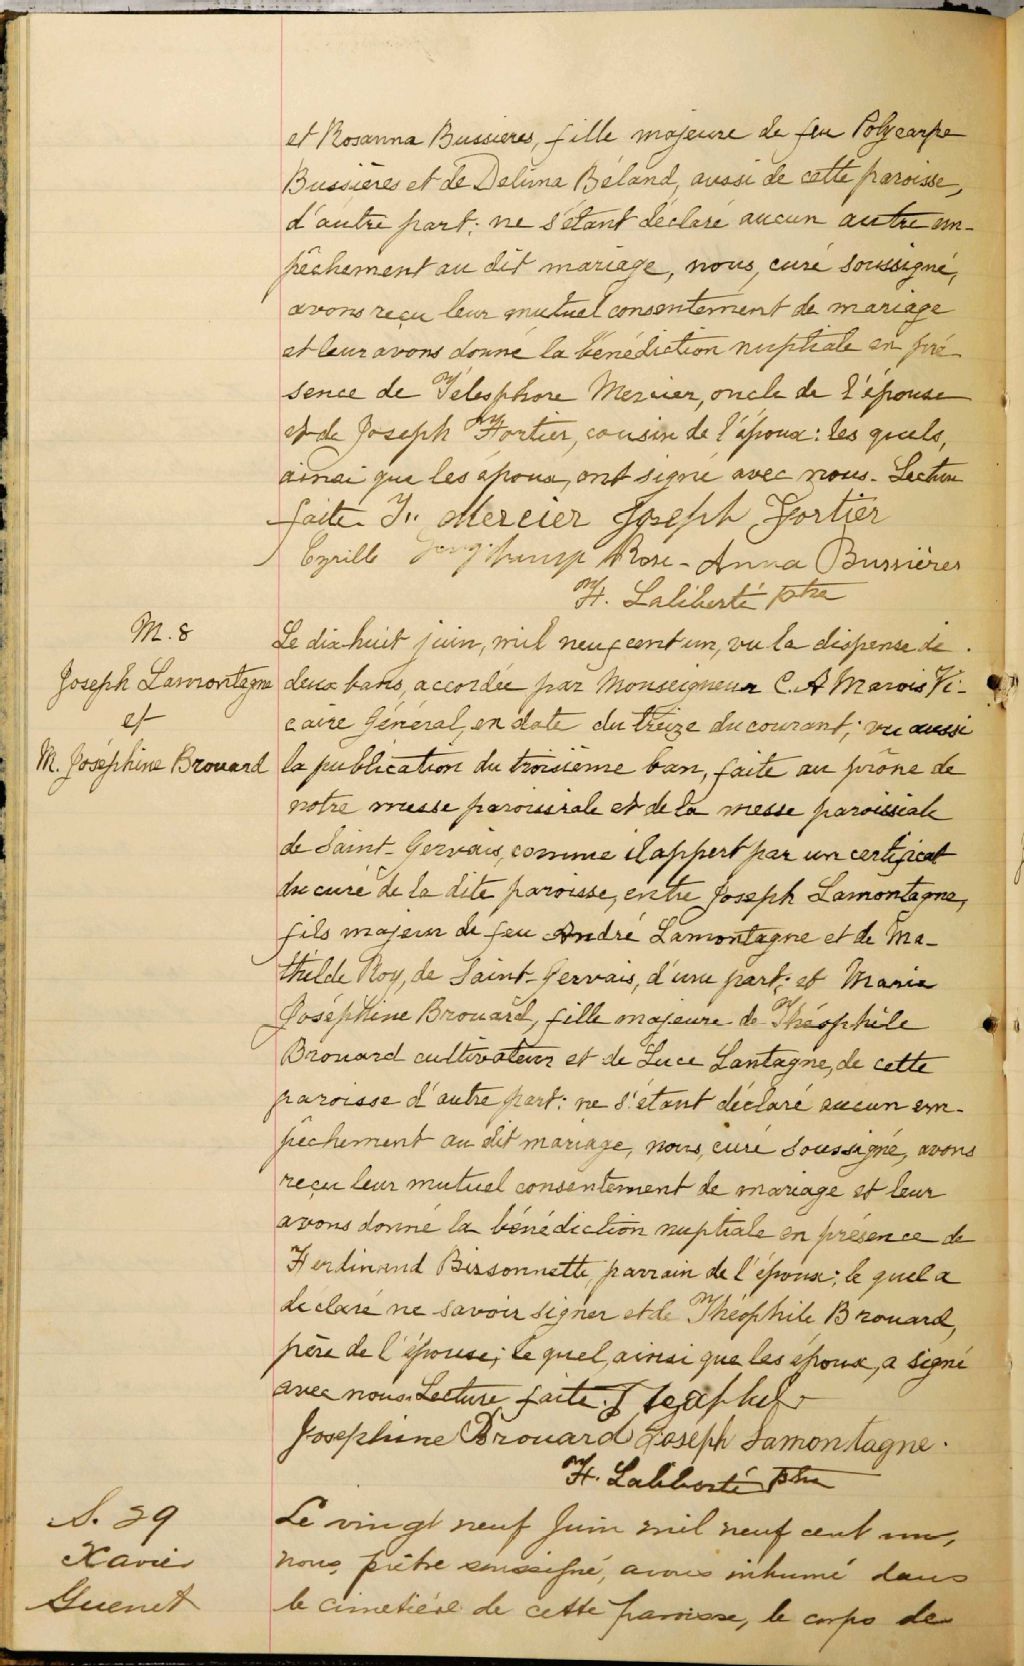 et Rosanna Bussières, fille majeure de feu Polycarpe
Bussières et de Delima Béland, aussi de cette paroisse,
d'autre part; ne s'étant déclaré aucun autre em-
pêchement au dit mariage, nous, curé soussigné,
avons reçu leur mutuel consentement de mariage
et leur avons donné la bénédiction nuptiale en pré-
sence de Télesphore Mercier, oncle de l'épouse
et de Joseph Fortier, cousin de l'époux: les quels,
ainsi que les époux, ont signé avec nous. Lecture
faite. T. Mercier Joseph Fortier
Cyrille Rose-Anna Bussières
H. Laliberté ptre
M. 8
Joseph Lamontagne
et
M. Joséphine Brouard
Le dix-huit juin, mil neuf cent un, vu la dispense de
deux bans, accordée par Monseigneur C. A Marois Vi-
caire Général, en date du treize du courant; vu aussi
la publication du troisième ban, faite au prône de
notre messe paroissiale et de la messe paroissiale
de Saint-Gervais, comme il appert par un certificat
du curé de la dite paroisse, entre Joseph Lamontagne,
fils majeur de feu André Lamontagne et de Ma-
thilde Roy, de Saint-Gervais, d'une part; et Marie
Joséphine Brouard, fille majeure de Théophile
Brouard cultivateur et de Luce Lantagne, de cette
paroisse d'autre part: ne s'étant déclaré aucun em-
pêchement au dit mariage, nous, curé soussigné, avons
reçu leur mutuel consentement de mariage et leur
avons donné la bénédiction nuptiale en présence de
Ferdinand Bissonnette, parrain de l'époux; le quel a
déclaré ne savoir signer et de Théophile Brouard,
père de l'épouse; le quel, ainsi que les époux, a signé
avec nous. Lecture faite.
Josephine Brouard Joseph Lamontagne.
H. Laliberté ptre
S. 29
Xavier
Guenet
Le vingt neuf Juin mil neuf cent un,
nous, prêtre soussigné, avons inhumé dans
le cimetière de cette paroisse, le corps de